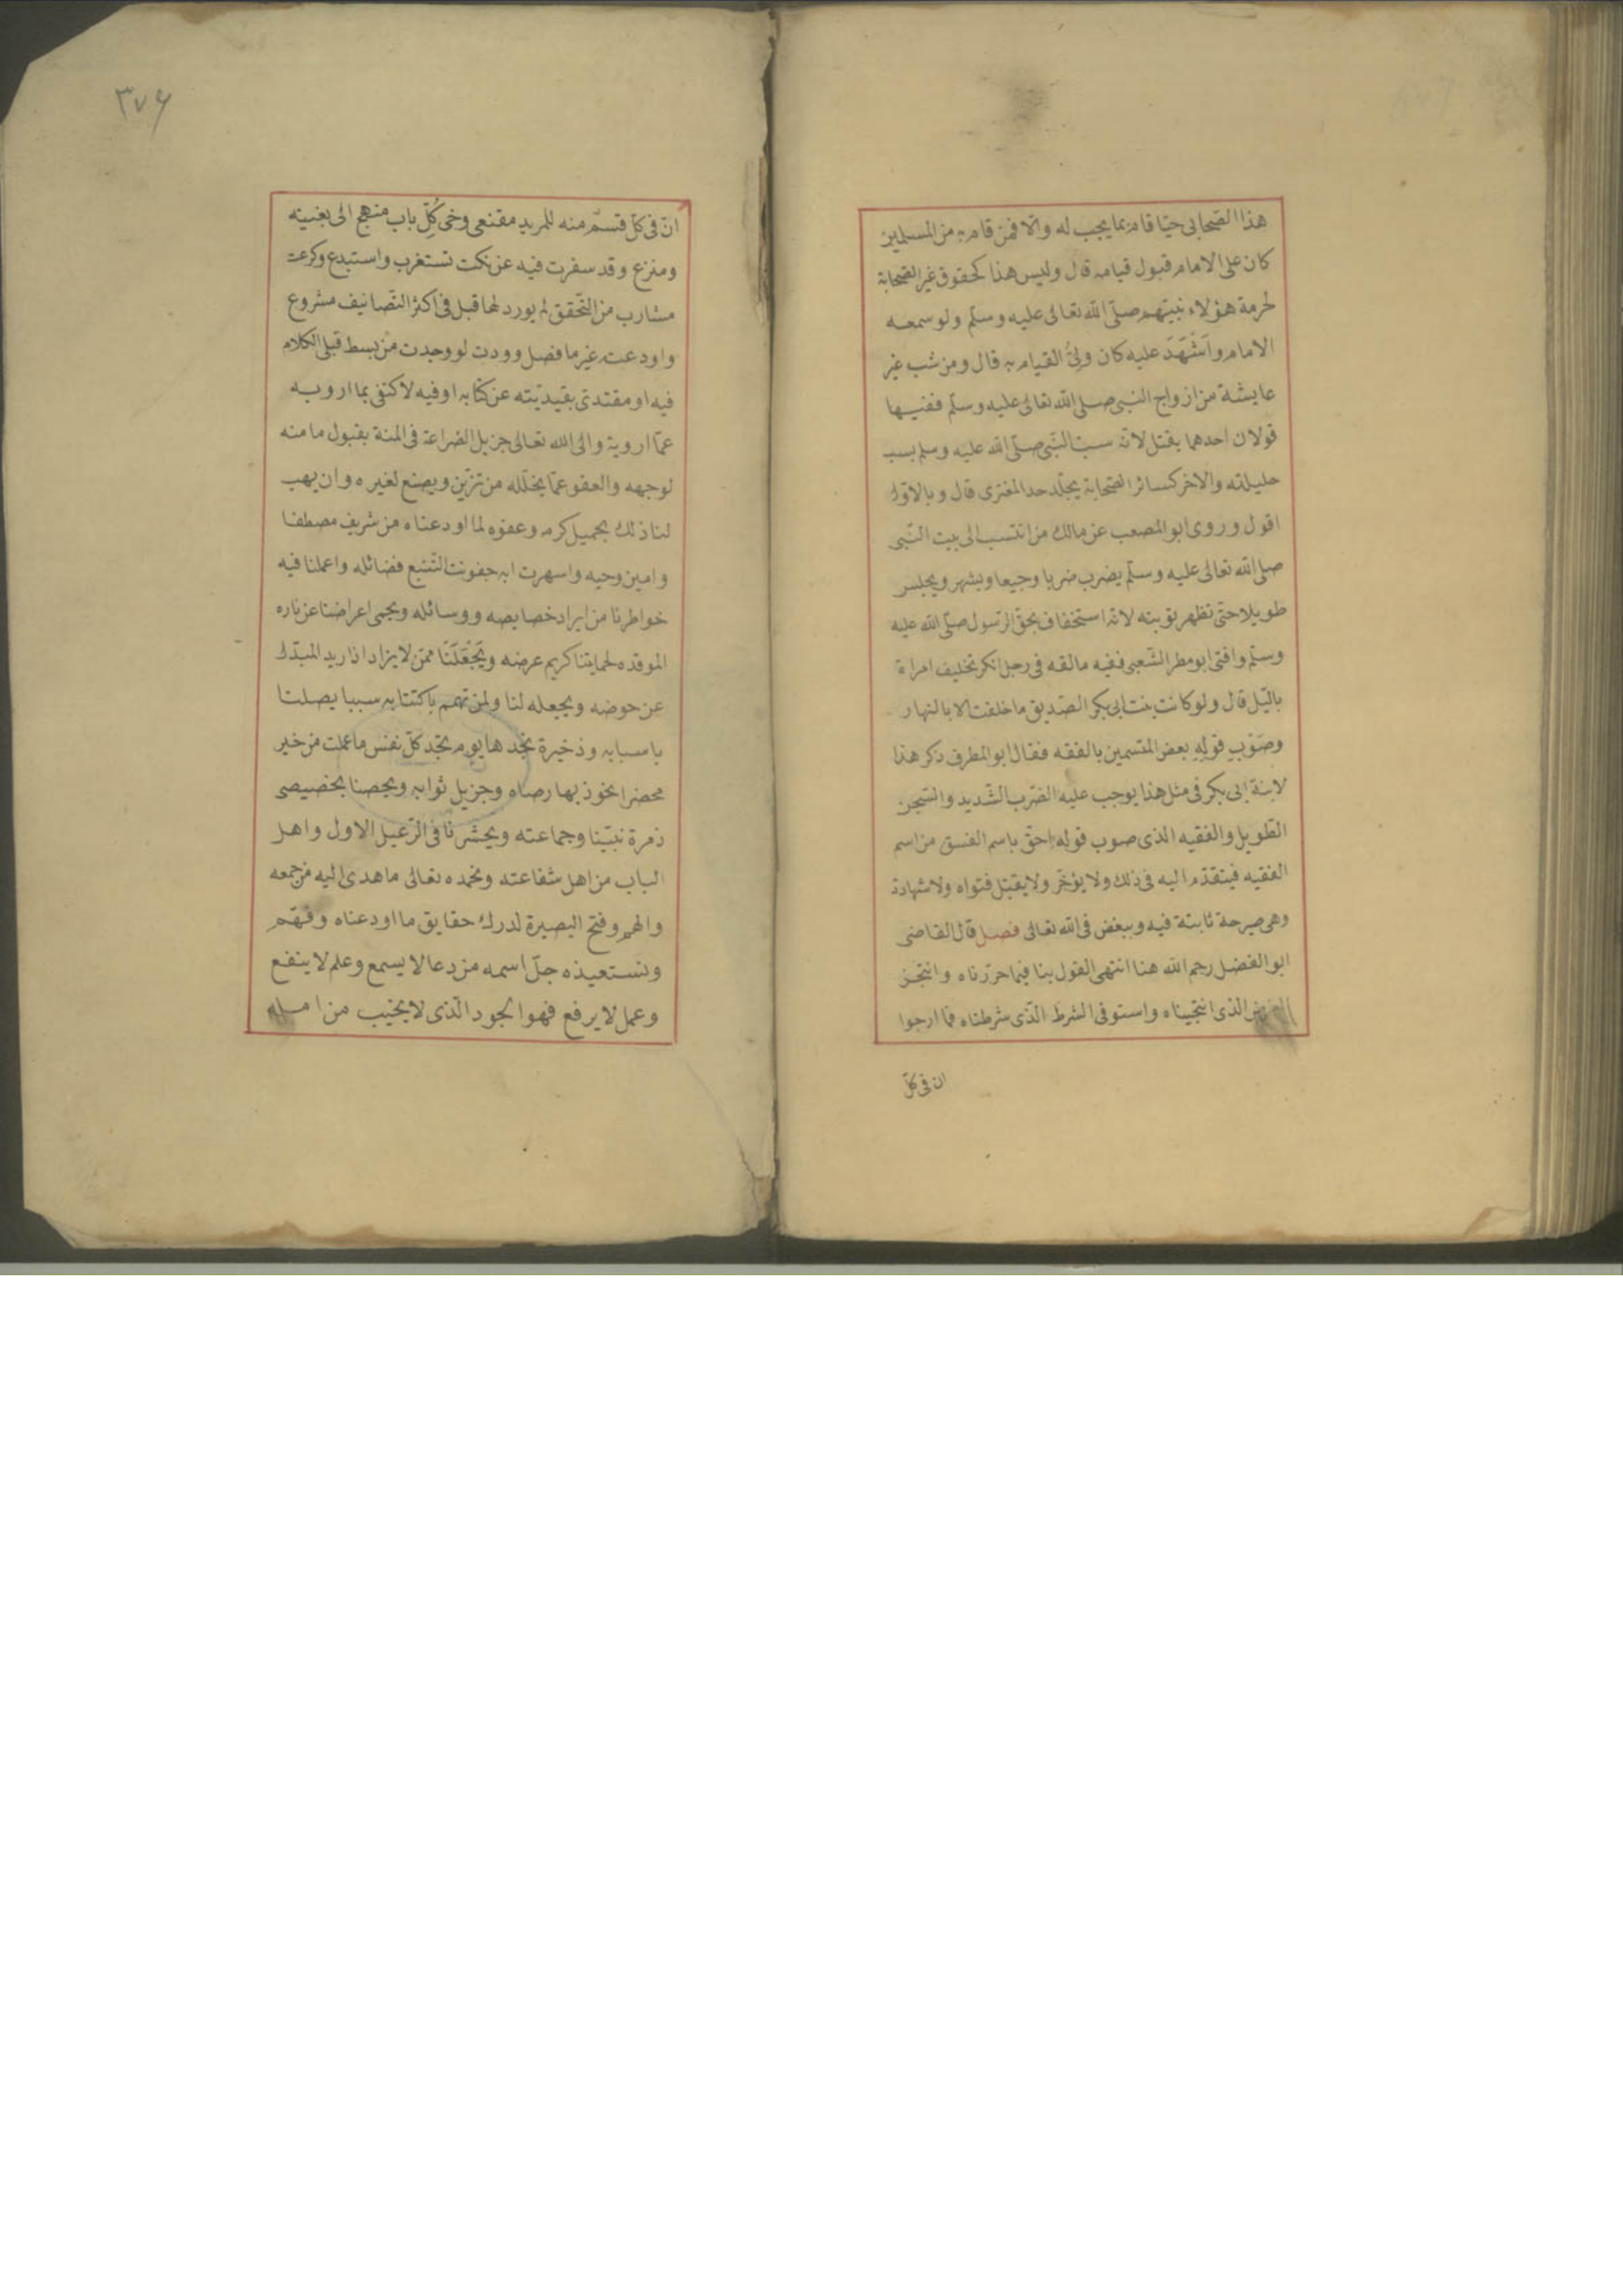 هذا الصحابى حيّا قام بما يجب له والّا فمن قام به من المسلمين
كان على الامام قبول قيامه قال وليس هذا كحقوق غير الصحابة
لحرمة هؤلاء بنبيّهم صلّى الله تعالى عليه وسلّم ولو سمعه
الامام واَشْهَدَ عليه كان ولىُّ القيام به قال ومن سب غير
عايشة من ازواج النبى صلى الله تعالى عليه وسلّم ففيها
قولان احدهما يقتل لانّه سبّ النّبى صلّى الله عليه وسلم بسب
حليلته والاخر كسائر الصّحابة يجلّد حد المفترى قال وبالاوّل
اقول وروى ابو المصعب عن مالك من انتسب الى بيت النّبى
صلى الله تعالى عليه وسلّم يضرب ضربا وجيعا ويشهر ويحبس
طويلا حتّى تظهر توبته لانّه استخفاف بحقّ الرّسول صلّى الله عليه
وسلّم وافتى ابو مطر الشّعبى فقيه مالقه فى رجل انكر تحليف امراة
باللّيل قال ولو كانت بنت ابى بكر الصّديق ما حلفت الا بالنهار
وصَوّب قوله بعض المتسمين بالفقه فقال ابو المطرف ذكر هذا
لابنة ابى بكر فى مثل هذا يوجب عليه الضّرب الشّديد والسّجن
الطّويل والفقيه الذى صوب قوله احقّ باسم الفسق من اسم
الفقيه فيتقدّم اليه فى ذلك ولا يؤخّر ولا يقبل فتواه ولا شهادة
وهى جرحة ثابتة فيه ويبغض فى الله تعالى فصل قال القاضى
ابو الفضل رحم الله هنا انتهى القول بنا فيما حرّرناه وانتجز
الغرض الذى انتجيناه واستوفى الشرط الّذى شرطناه فما ارجوا
ان فى كلّ
٣٧۶
انّ فى كلّ قسمٍ منه للمريد مقنعى وفى كُلّ باب منهج الى بغيته
ومنزع وقد سفرت فيه عن نكت تستغرب واستبدع وكرعت
مشارب من التّحقق لم يورد لها قبل فى اكثر التّصانيف مشروع
واودعته غير ما فصل وودت لو وجدت من بسط قبلى الكلام
فيه او مقتدى يفيدنيه عن كتابه او فيه لاكتفى بما ارويه
عمّا ارويه والى الله تعالى جزيل الضراعة فى المنة بقبول ما منه
لوجهه والعفو عمّا يخلّله من تزّين ويصنع لغيره وان يهب
لنا ذلك بجميل كرمه وعفوه لما اودعناه من شريف مصطفا
وامين وحيه واسهرت به جفونت لتتبع فضائله واعملنا فيه
خواطرنا من ايراد خصايصه ووسائله ويحمى اعراضنا عن ناره
الموقده لحمايتنا كريم عرضه ويَجْعَلَنَا ممّن لا يزاد اذا ريد المبدّل
عن حوضه ويجعله لنا ولمن تهمم باكتتابه سببا يصلنا
باسبابه وذخيرة نجدها يوم تجد كلّ نفس ما عملت من خير
محضرا نحوذ بها رصاه وجزيل ثوابه ويحصنا بخصيصى
زمرة نبيّنا وجماعته ويحشرنا فى الرّعيل الاول واهل
الباب من اهل شفاعته ونحمده تعالى ما هدى اليه من جمعه
والهم وفتح البصيرة لدرك حقايق ما اودعناه وفهّم
ونستعيذه جلّ اسمه من دعا لا يسمع وعلم لا ينفع
وعمل لا يرفع فهو الجود الّذى لا يخيب من امله